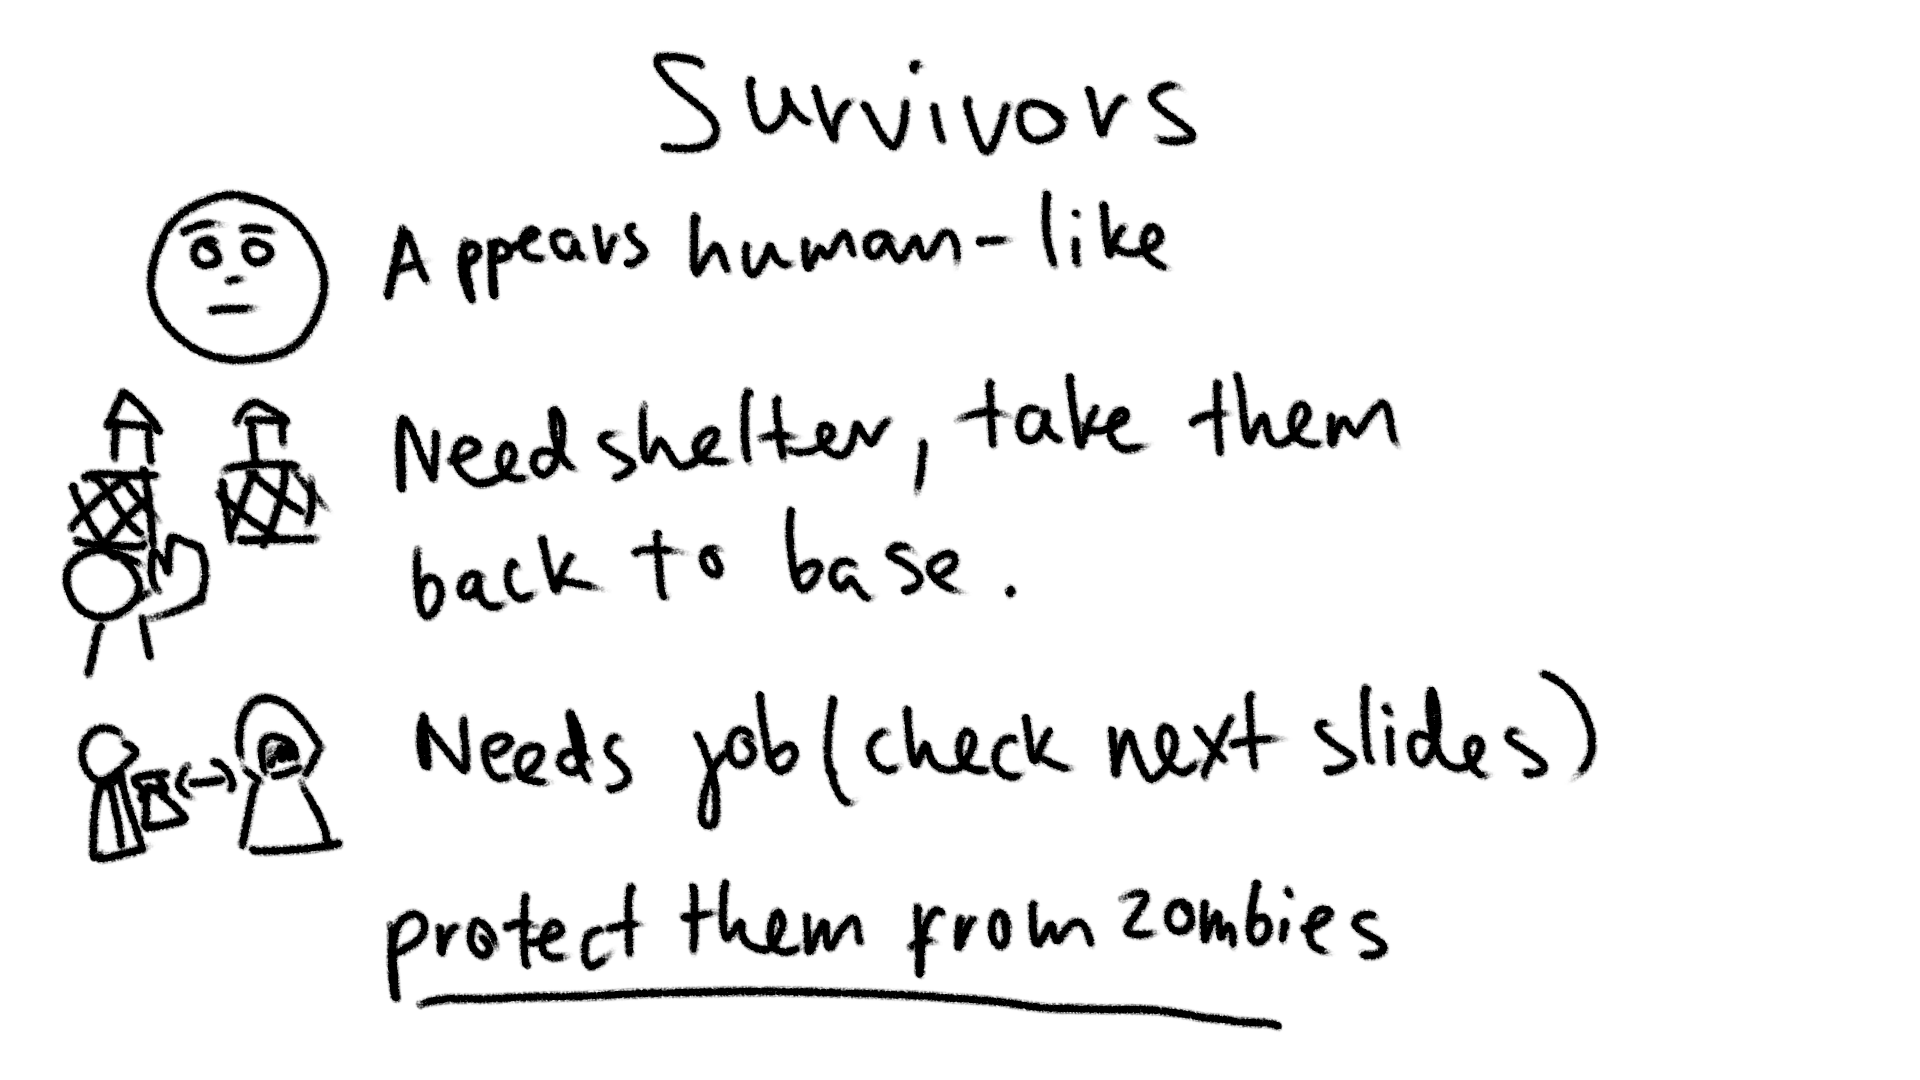 Survivors
Appears human-like
Need shelter, take them
back to base.
Needs job (check next slides)
protect them from zombies